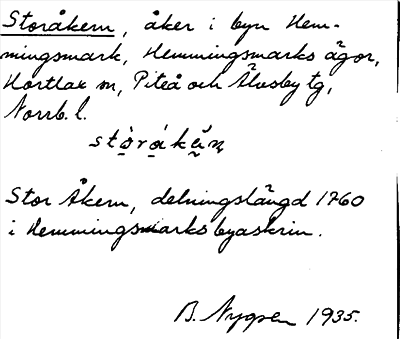 Storåkern, åker i byn Hem-
mingsmark, Hemmingsmarks ägor,
Hortlax sn, Piteå och Älvsby tg,
Norrb. l.
stòråkäṇ
Stor Åkern, delningslängd 1760
i Hemmingsmarks byaskrin.
B. Nygren 1935.